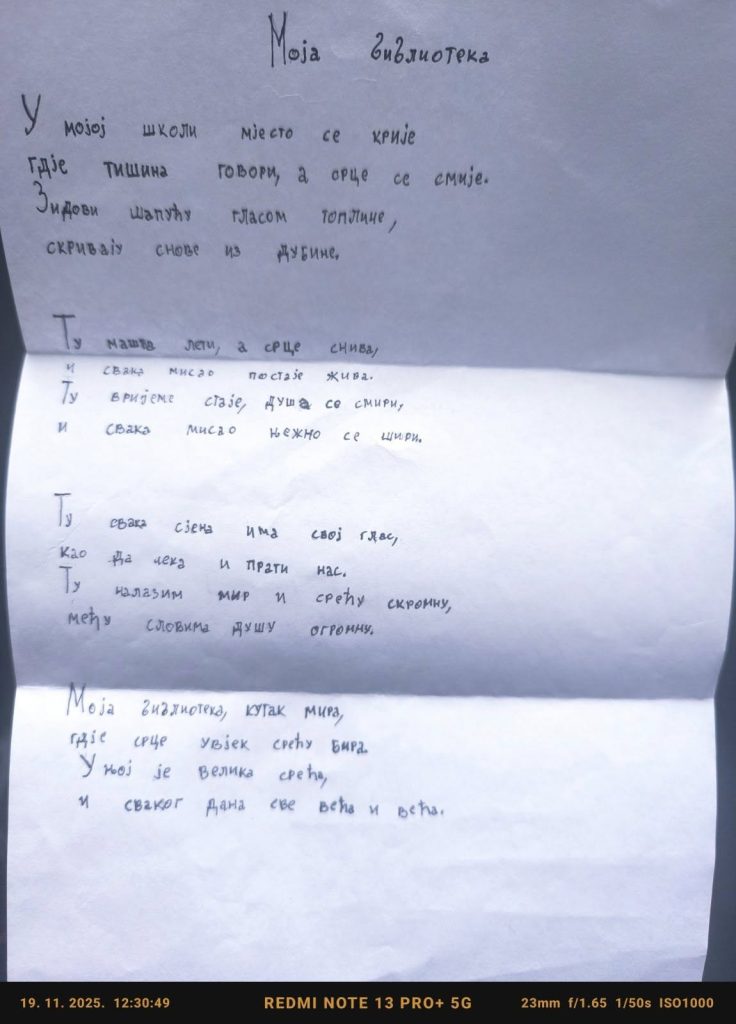 Моја библиотека
У мојој школи мјесто се крије
гдје тишина говори, а срце се смије.
Зидови шапућу гласом топлине,
скривају снове из дубине.
Ту машта лети, а срце снива,
и свака мисао постаје жива.
Ту вријеме стаје, душа се смири,
и свака мисао њежно се шири.
Ту свака сјена има свој глас,
као да чека и прати нас.
Ту налазим мир и срећу скромну,
међу словима душу огромну.
Моја библиотека, кутак мира,
гдје срце увјек срећу бира.
У њој је велика срећа,
и сваког дана све већа и већа.
19. 11. 2025. 12:30:49 REDMI NOTE 13 PRO+ 5G 23mm f/1.65 1/50s ISO1000